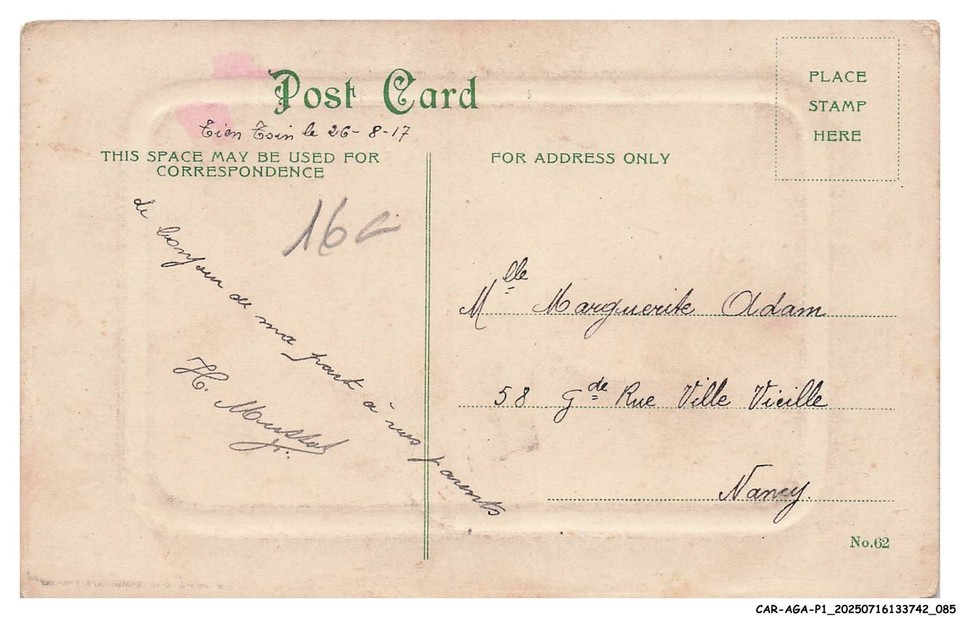 Post Card
PLACE
STAMP
HERE
Tien Tsin le 26-8-17
THIS SPACE MAY BE USED FOR
CORRESPONDENCE
FOR ADDRESS ONLY
16
de bonjour de ma part à vos parents
H.
Mlle Marguerite Adam
58 Gde Rue Ville Vieille
Nancy.
No.62
CAR-AGA-P1_20250716133742_085